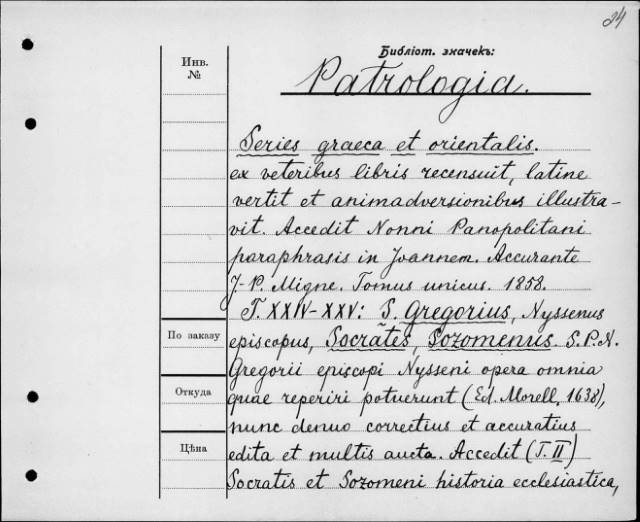 24
Библіот. значекъ:
Patrologia.
Инв.
№
Series graeca et orientalis.
ex veteribus libris recensuit, latine
vertit et animadversionibus illustra-
vit. Accedit Nonni Panopolitani
paraphrasis in Joannem. Accurante
J.-P. Migne. Tomus unicus. 1858.
T. XXIV-XXV: S. Gregorius, Nyssenus
По заказу
episcopus, Socrates, Sozomenus. S.P.N.
Gregorii episcopi Nysseni opera omnia
Откуда
quae reperiri potuerunt (Ed. Morell, 1638),
nunc denuo correctius et accuratius
Цѣна
edita et multis aucta. Accedit (T. II)
Socratis et Sozomeni historia ecclesiastica,